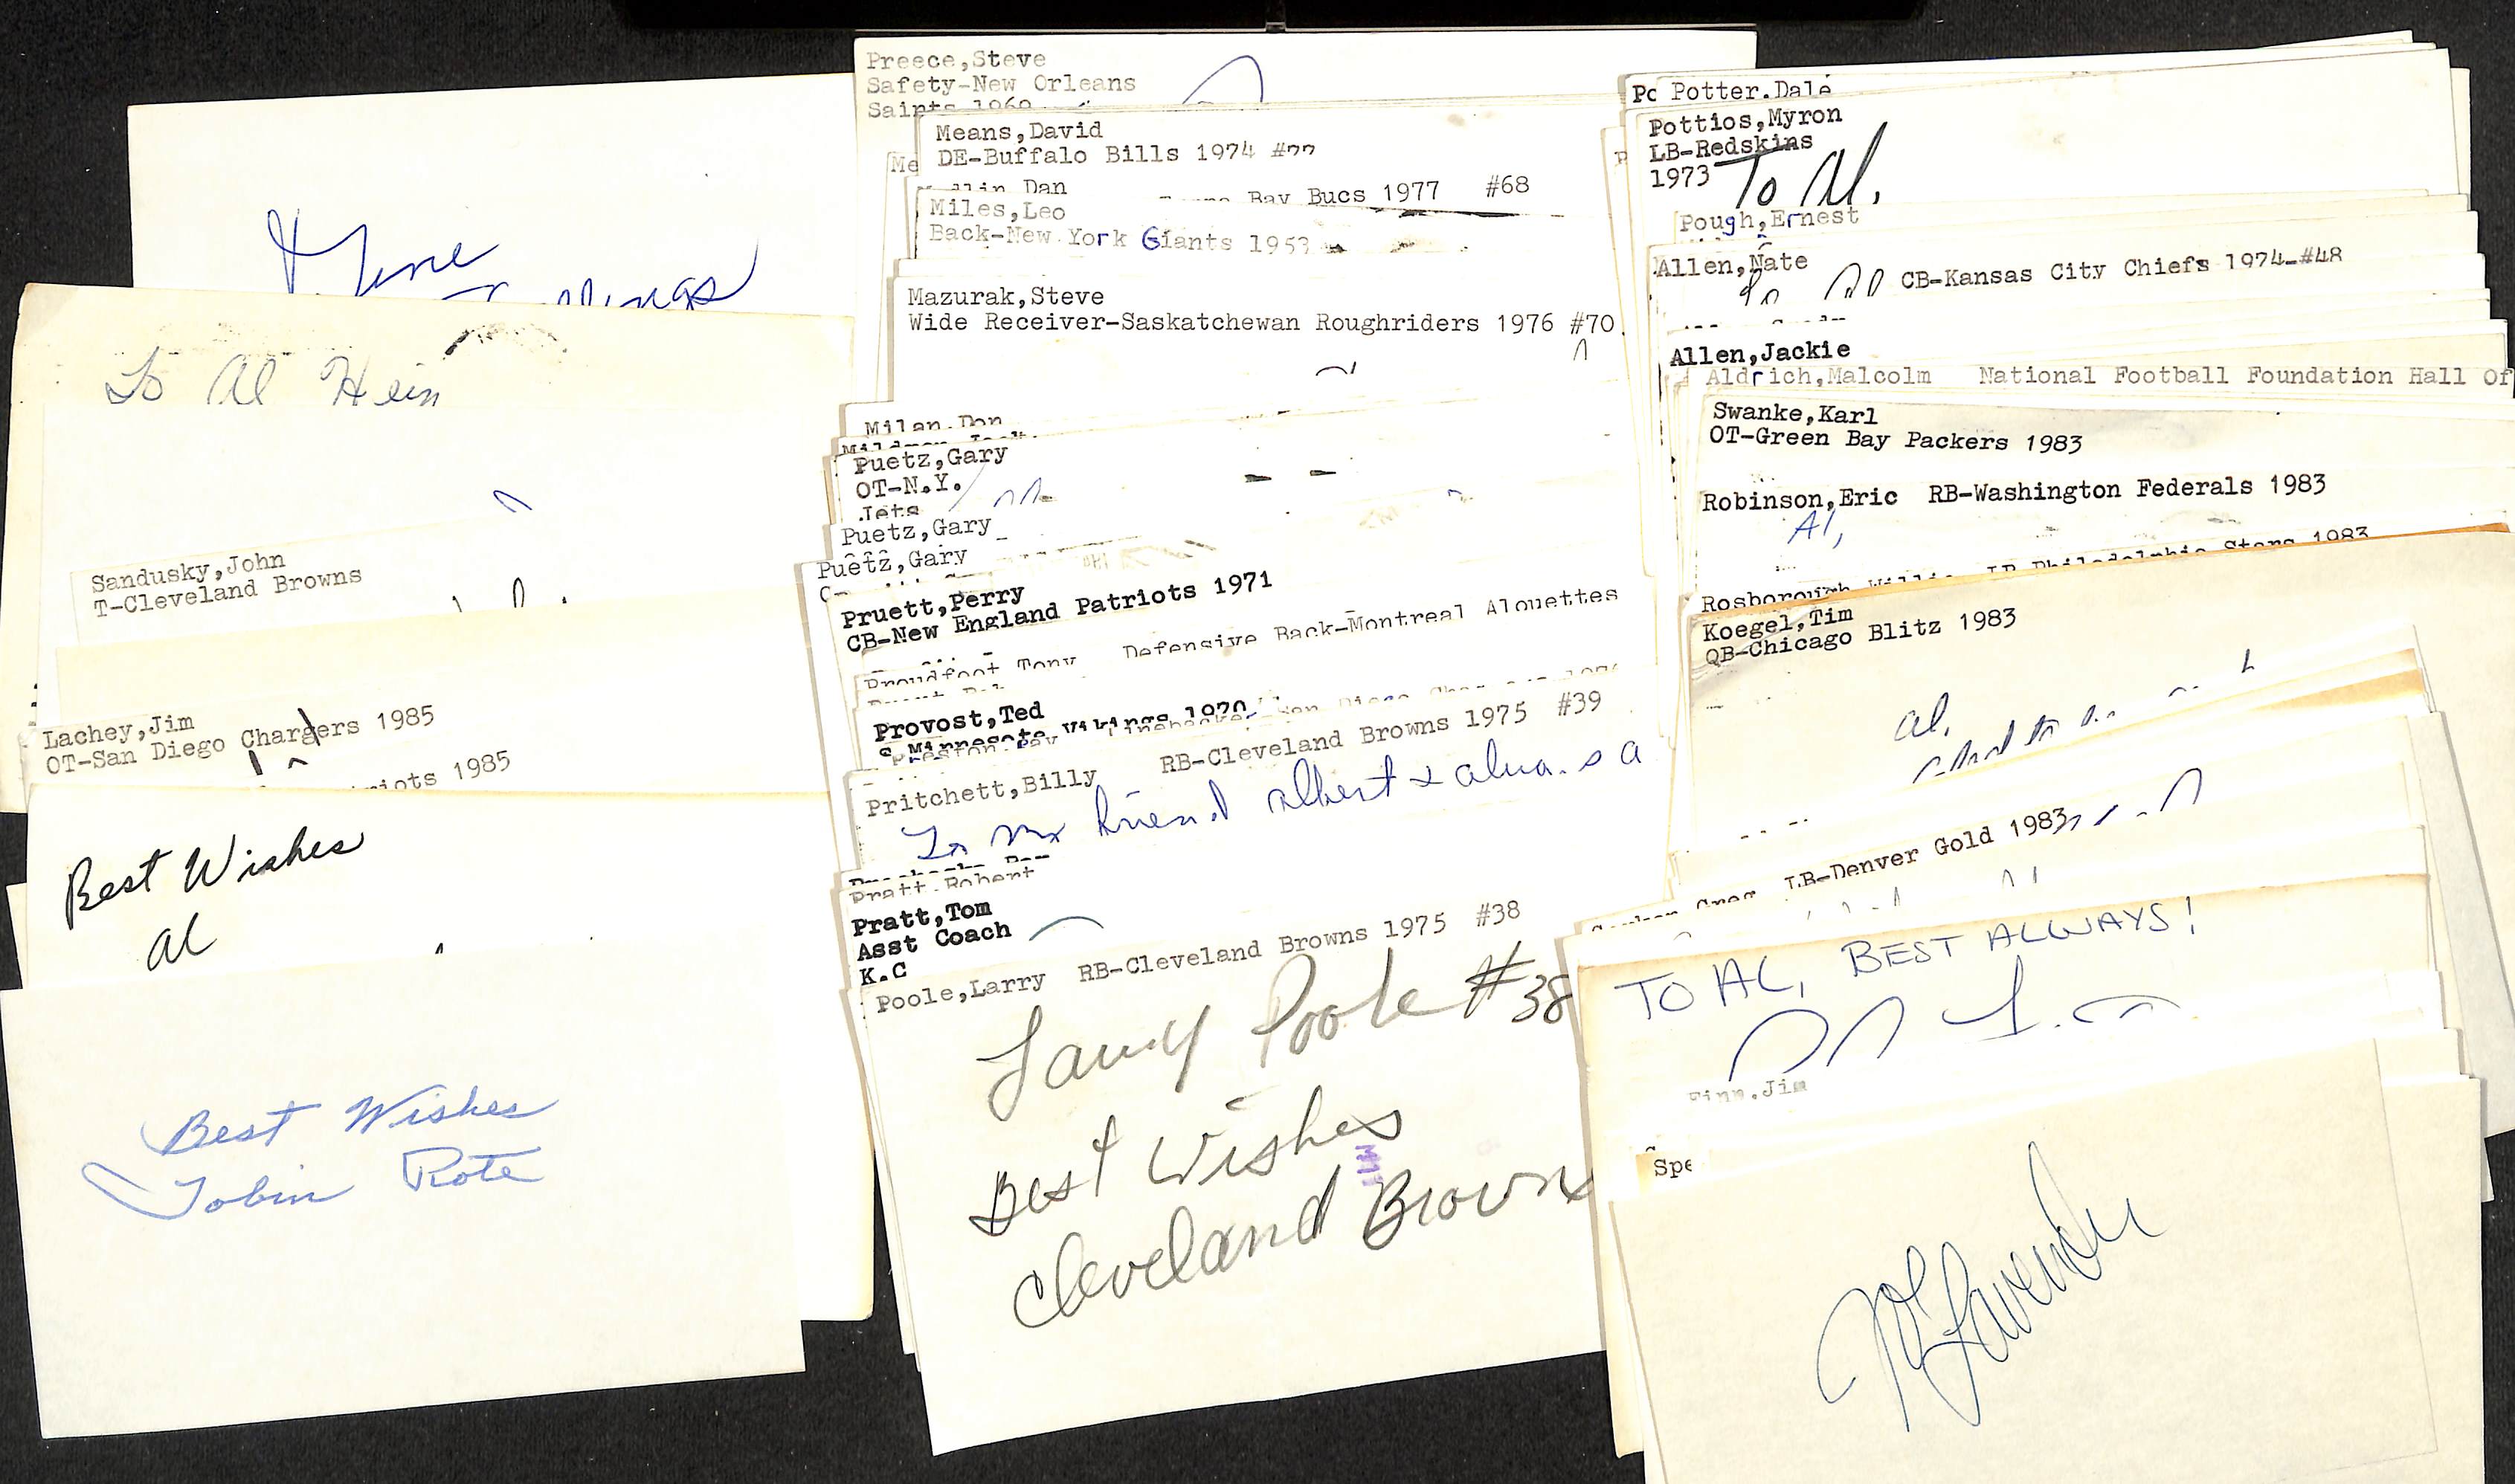 To Al Hein
Sandusky,John
T-Cleveland Browns
Lachey,Jim
OT-San Diego Chargers 1985
1985
Best Wishes
Al
Best Wishes
Tobin Rote
Preece,Steve
Safety-New Orleans
Saints 1969
Means,David
DE-Buffalo Bills 1974
Me
Dan
Bay Bucs 1977 #68
Miles,Leo
Back-New York Giants 1953
Mazurak,Steve
Wide Receiver-Saskatchewan Roughriders 1976 #70
Milan,Don
Puetz,Gary
OT-N.Y.
Jets
Puetz,Gary
Puetz,Gary
Pruett,Perry
CB-New England Patriots 1971
Proudfoot Tony Defensive Back-Montreal Alouettes
Provost,Ted
Minnesota Vikings 1970
Pritchett,Billy RB-Cleveland Browns 1975 #39
To my friend Albert
Pratt,Robert
Pratt,Tom
Asst Coach
K.C
Poole,Larry RB-Cleveland Browns 1975 #38
Larry Poole #38
Best Wishes
Cleveland Browns
Po Potter,Dale
Pottios,Myron
LB-Redskins
1973
To Al,
Pough,Ernest
Allen,Nate
CB-Kansas City Chiefs 1974-#48
Allen,Jackie
Aldrich,Malcolm National Football Foundation Hall Of
Swanke,Karl
OT-Green Bay Packers 1983
Robinson,Eric RB-Washington Federals 1983
Al,
Rosborough Willie LB Philadelphia Stars 1983
Koegel,Tim
QB-Chicago Blitz 1983
Al,
LB-Denver Gold 1983
TO AL, BEST ALWAYS!
Finn,Jim
Spe